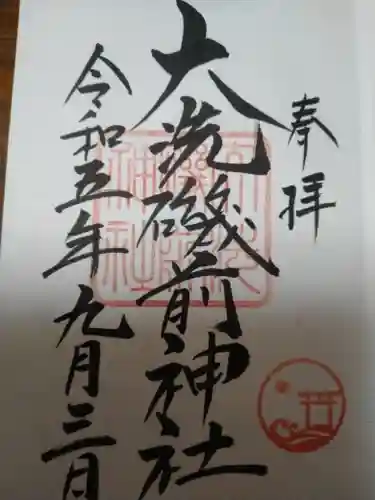 奉拝
大洗磯前神社
令和五年九月三日